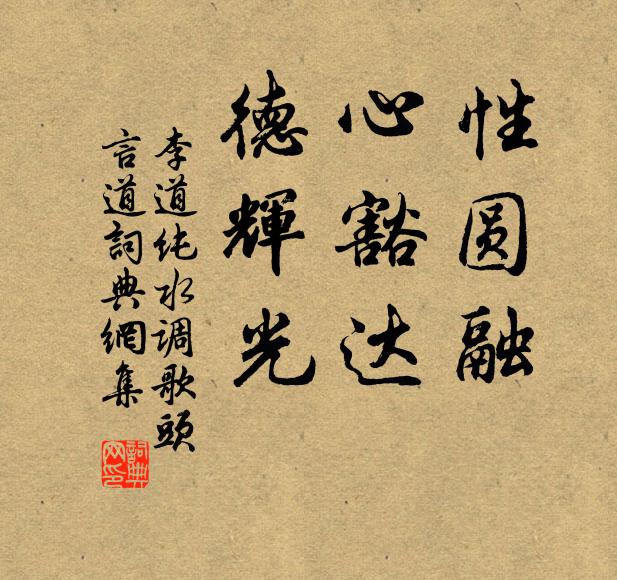 性圆融
心豁达
德輝光
李道纯水调歌頭
言道詞典網集
詞典
网印